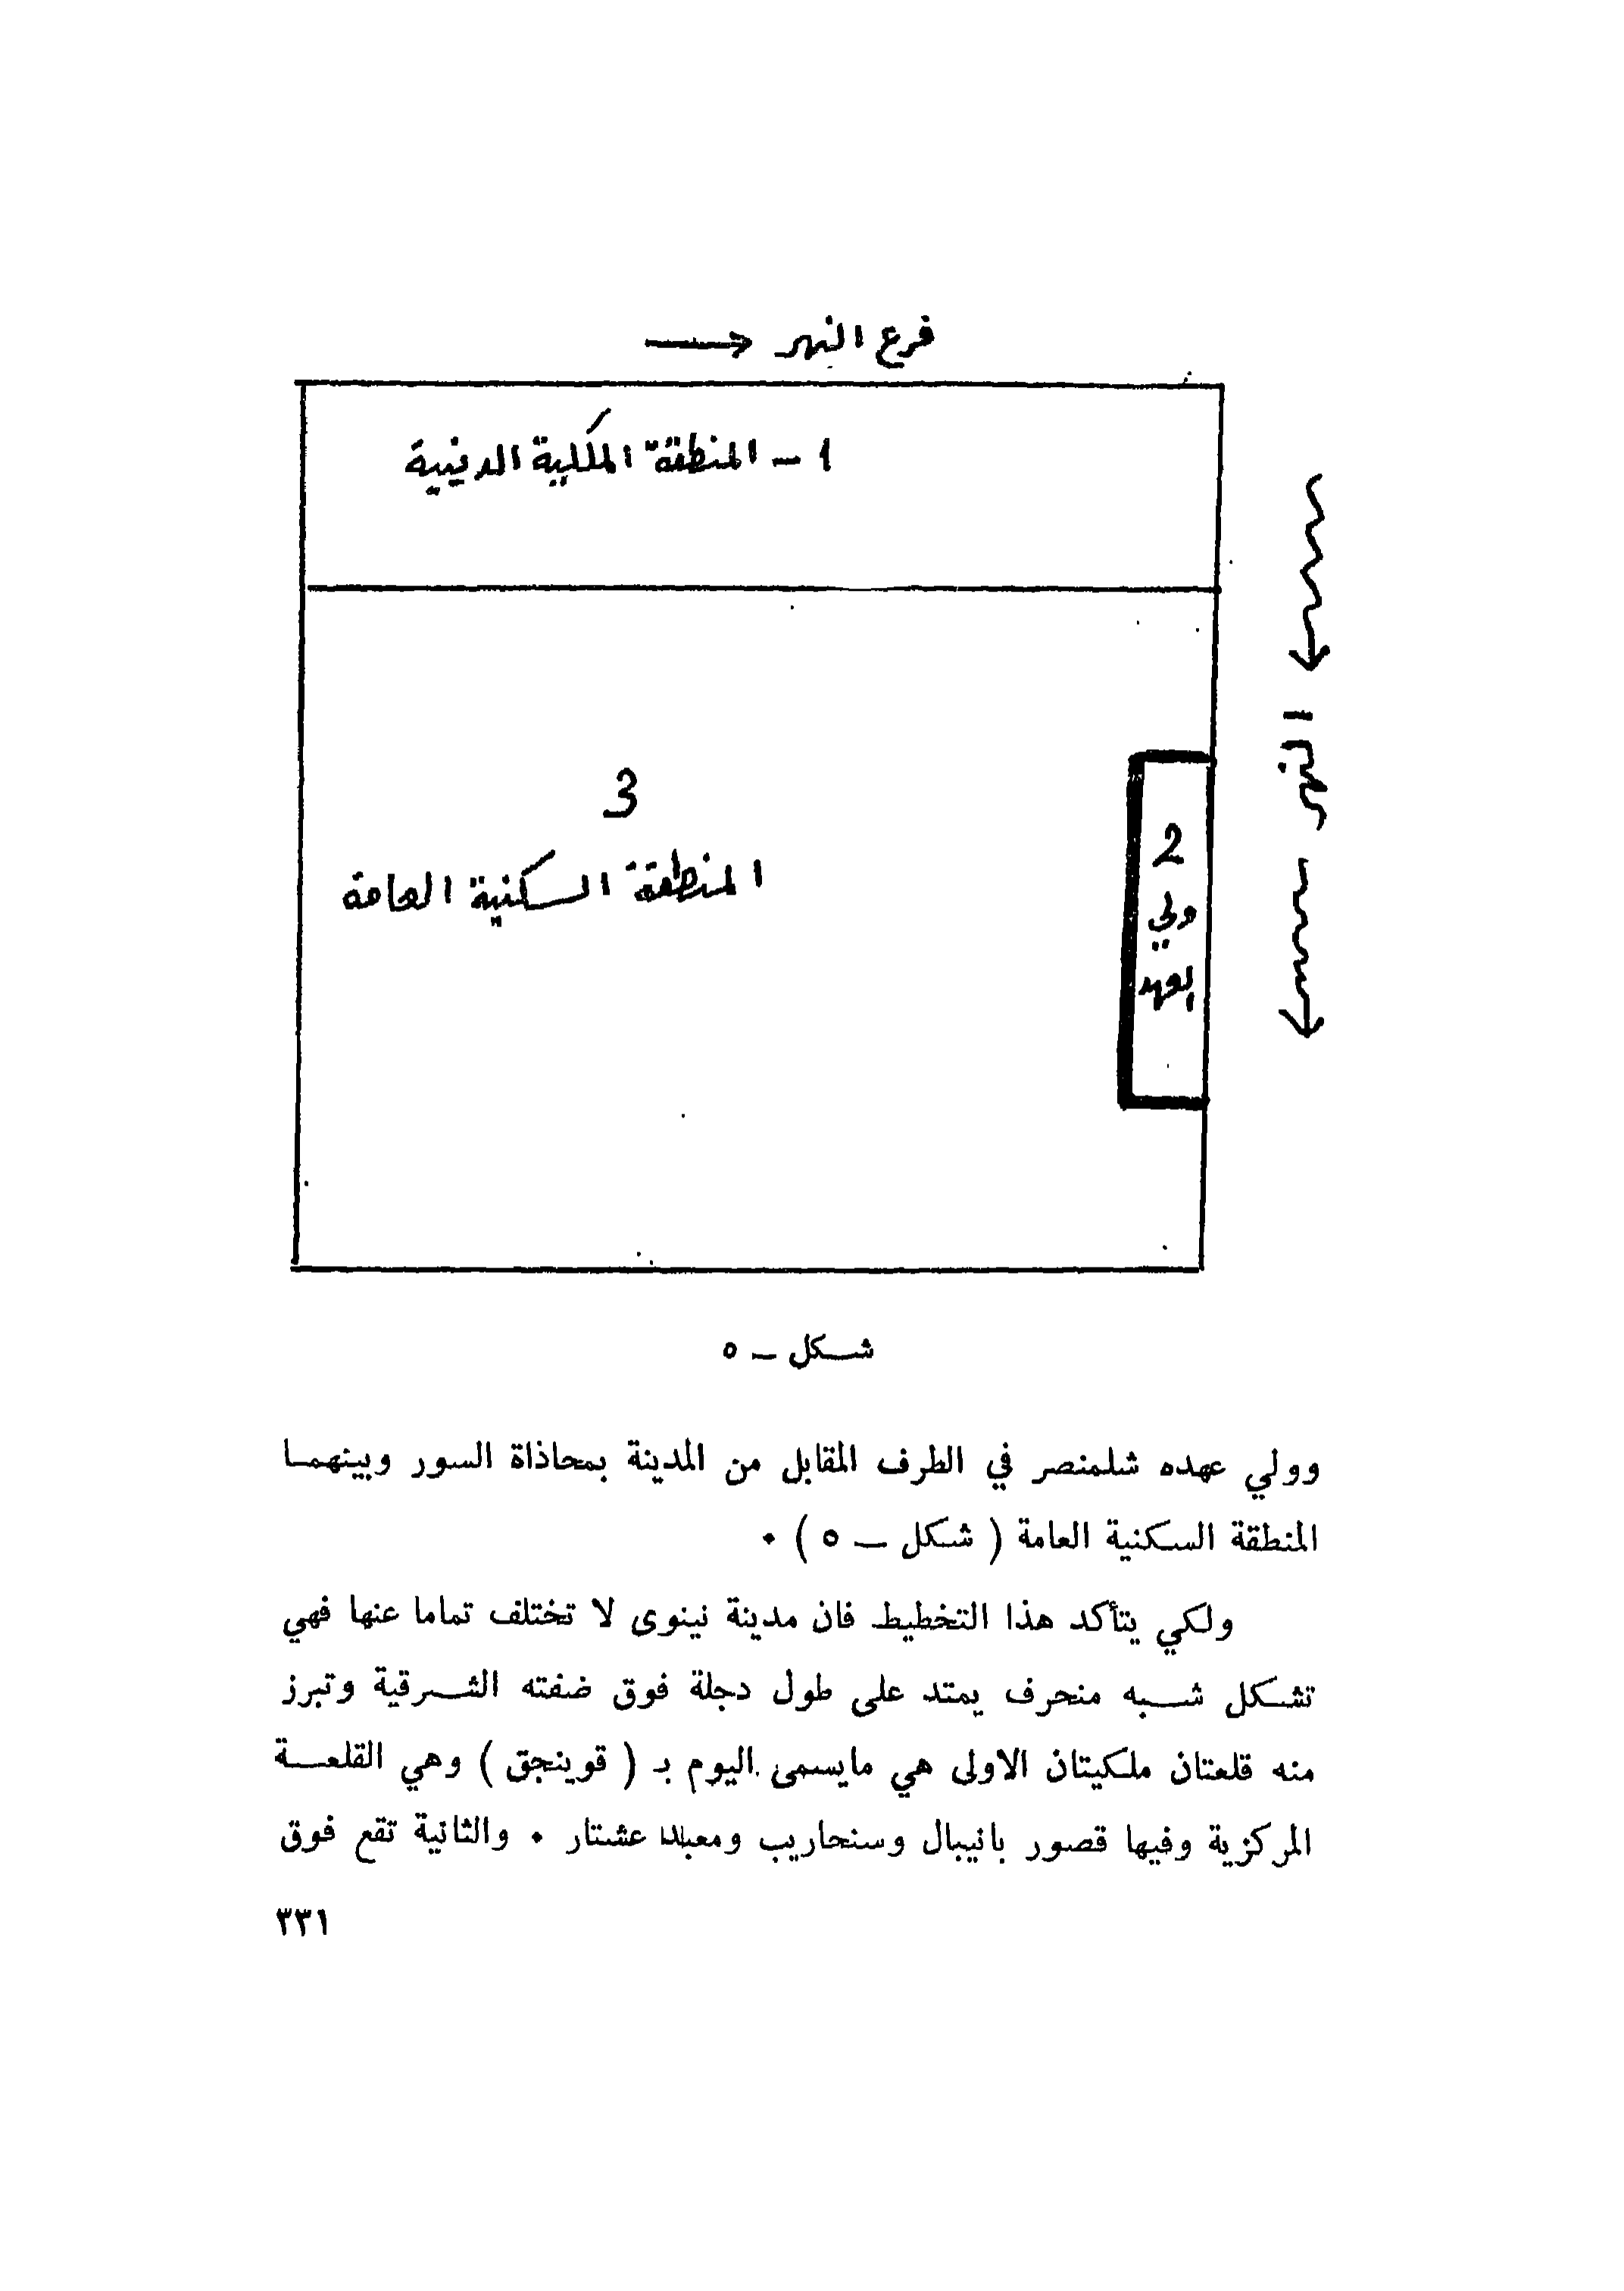 فرع النهر
1 - المنطقة الملكية الدينية
النهر
3
المنطقة السكنية العامة
2
ولي
العهد
شكل – ٥
وولي عهده شلمنصر في الطرف المقابل من المدينة بمحاذاة السور وبينهما
المنطقة السكنية العامة ( شكل – ٥ ) ٠
ولكي يتأكد هذا التخطيط فان مدينة نينوى لا تختلف تماما عنها فهي
تشكل شبه منحرف يمتد على طول دجلة فوق ضفته الشرقية وتبرز
منه قلعتان ملكيتان الاولى هي مايسمى اليوم بـ ( قوينجق ) وهي القلعة
المركزية وفيها قصور بانيبال وسنحاريب ومعبد عشتار ٠ والثانية تقع فوق
٣٣١